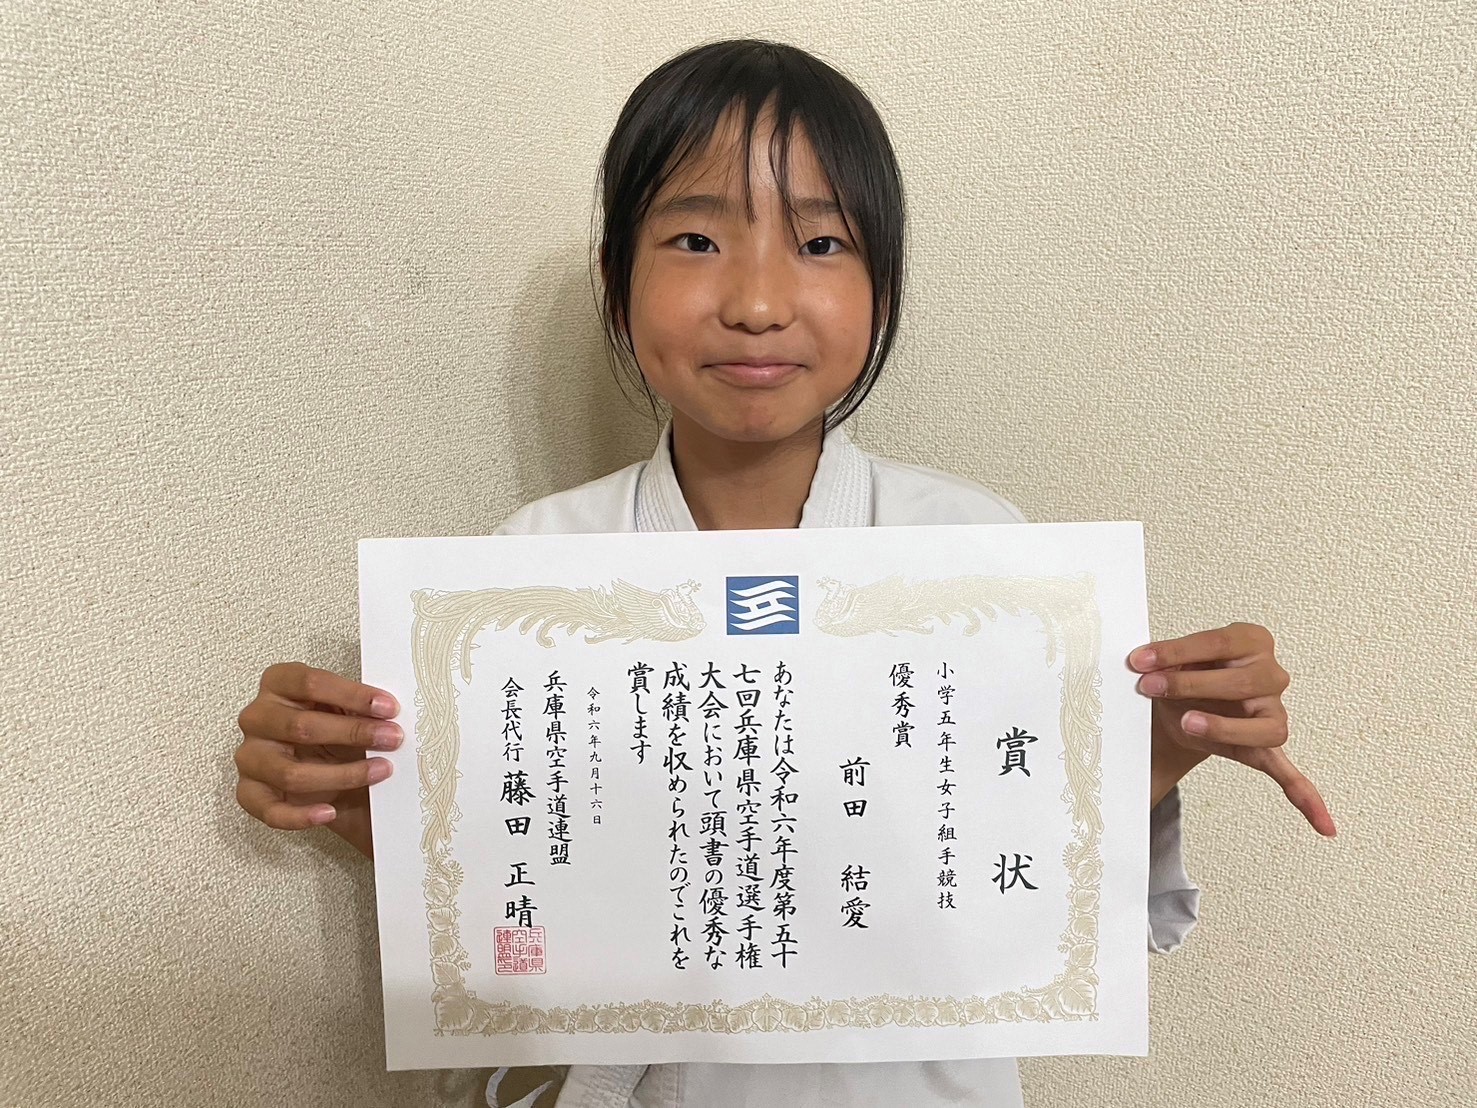 賞状
小学五年生女子組手競技
優秀賞
前田 結愛
あなたは令和六年度第五十
七回兵庫県空手道選手権
大会において頭書の優秀な
成績を収められたのでこれを
賞します
令和六年九月十六日
兵庫県空手道連盟
会長代行 藤田 正晴
兵庫県
空手道
連盟印